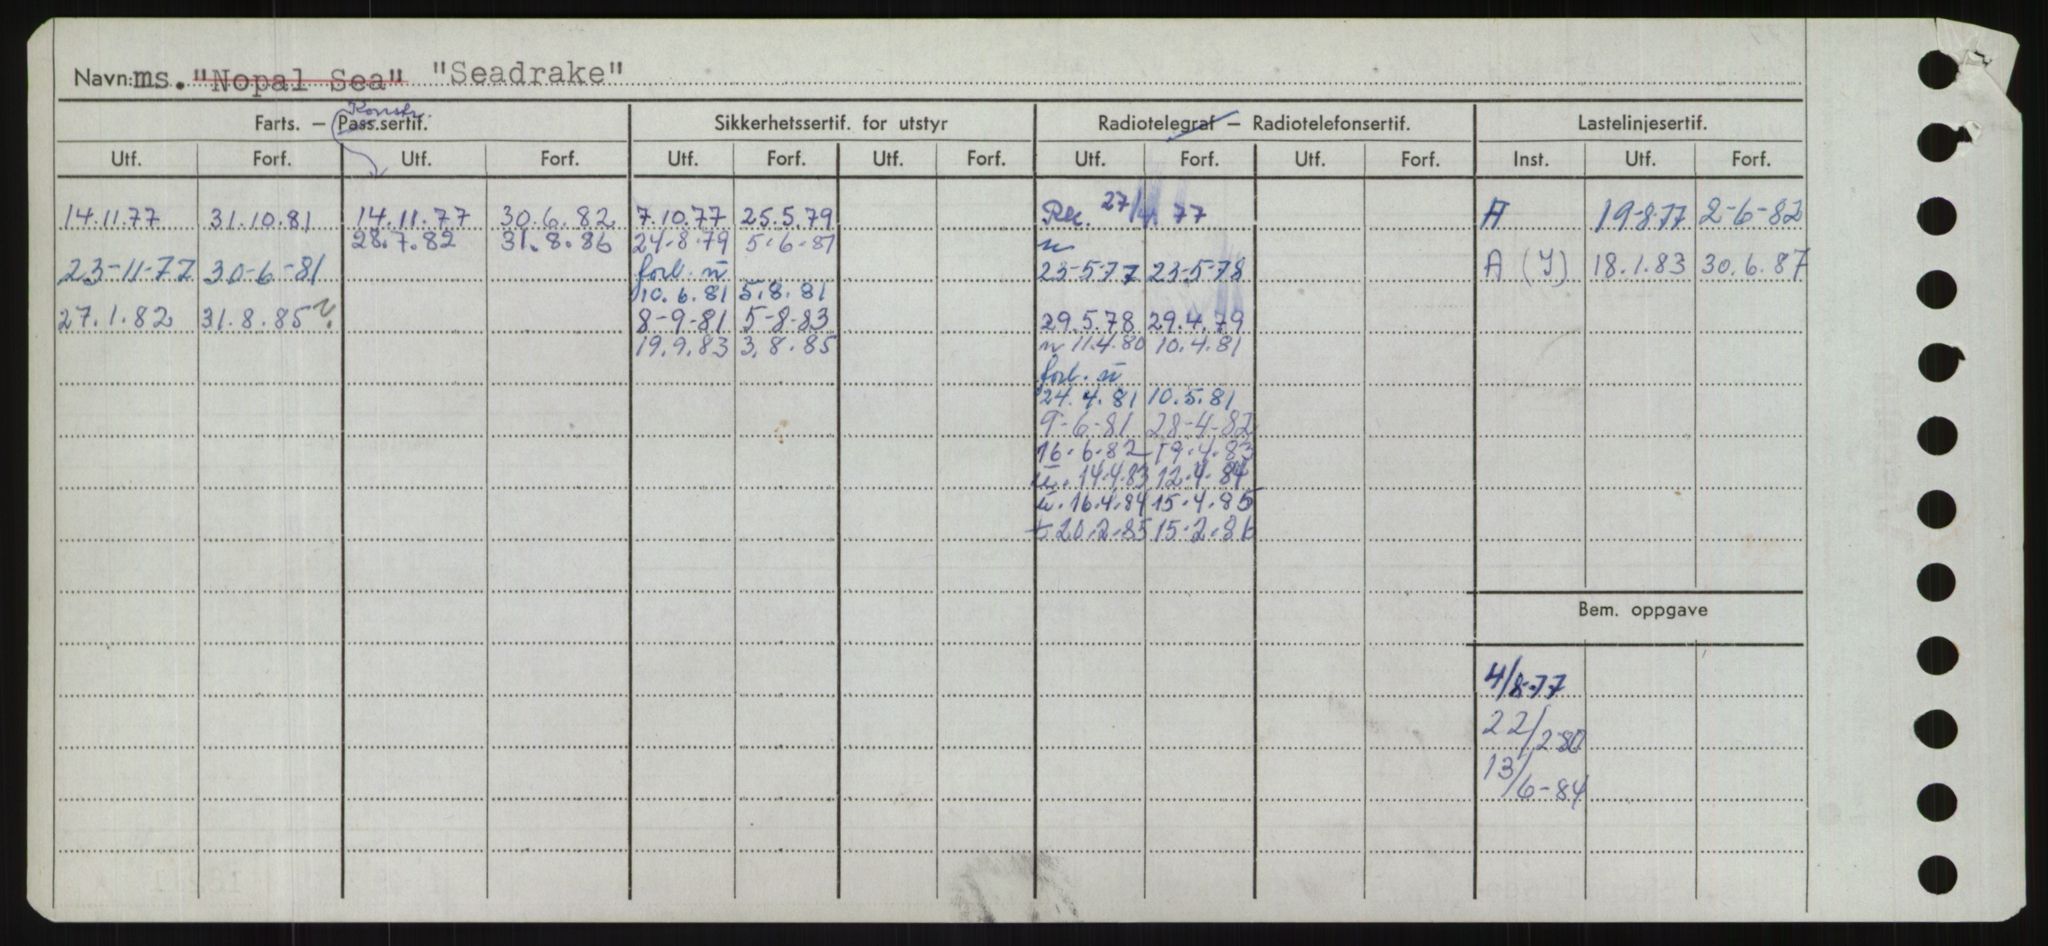 Navn: ms. "Nopal Sea" "Seadrake"
Konstr.
Farts. — Pass.sertif. Sikkerhetssertif. for utstyr Radiotelegraf — Radiotelefonsertif. Lastelinjesertif.
Utf. Forf. Utf. Forf. Utf. Forf. Utf. Forf. Utf. Forf. Utf. Forf. Inst. Utf. Forf.
14.11.77 31.10.81 14.11.77 30.6.82 7.10.77 25.5.79 27/4.77 A 19-8-77 2-6-82
28.7.82 31.8.86 24.8.79 5.6.81 n
23-11-77 30-6-81 forl. n 23-5-77 23-5-78 A (J) 18.1.83 30.6.87
10.6.81 5.8.81
27.1.82 31.8.85 8-9-81 5-8-83 29.5.78 29.4.79
19.9.83 3.8.85 n 11.4.80 10.4.81
forl. n
24.4.81 10.5.81
9-6-81 28-4-82
16.6.82 19.4.83
n. 14.4.83 12.4.84
n. 16.4.84 15.4.85
t 20.2.85 15.2.86
Bem. oppgave
4/8-77
22/2-80
13/6-84